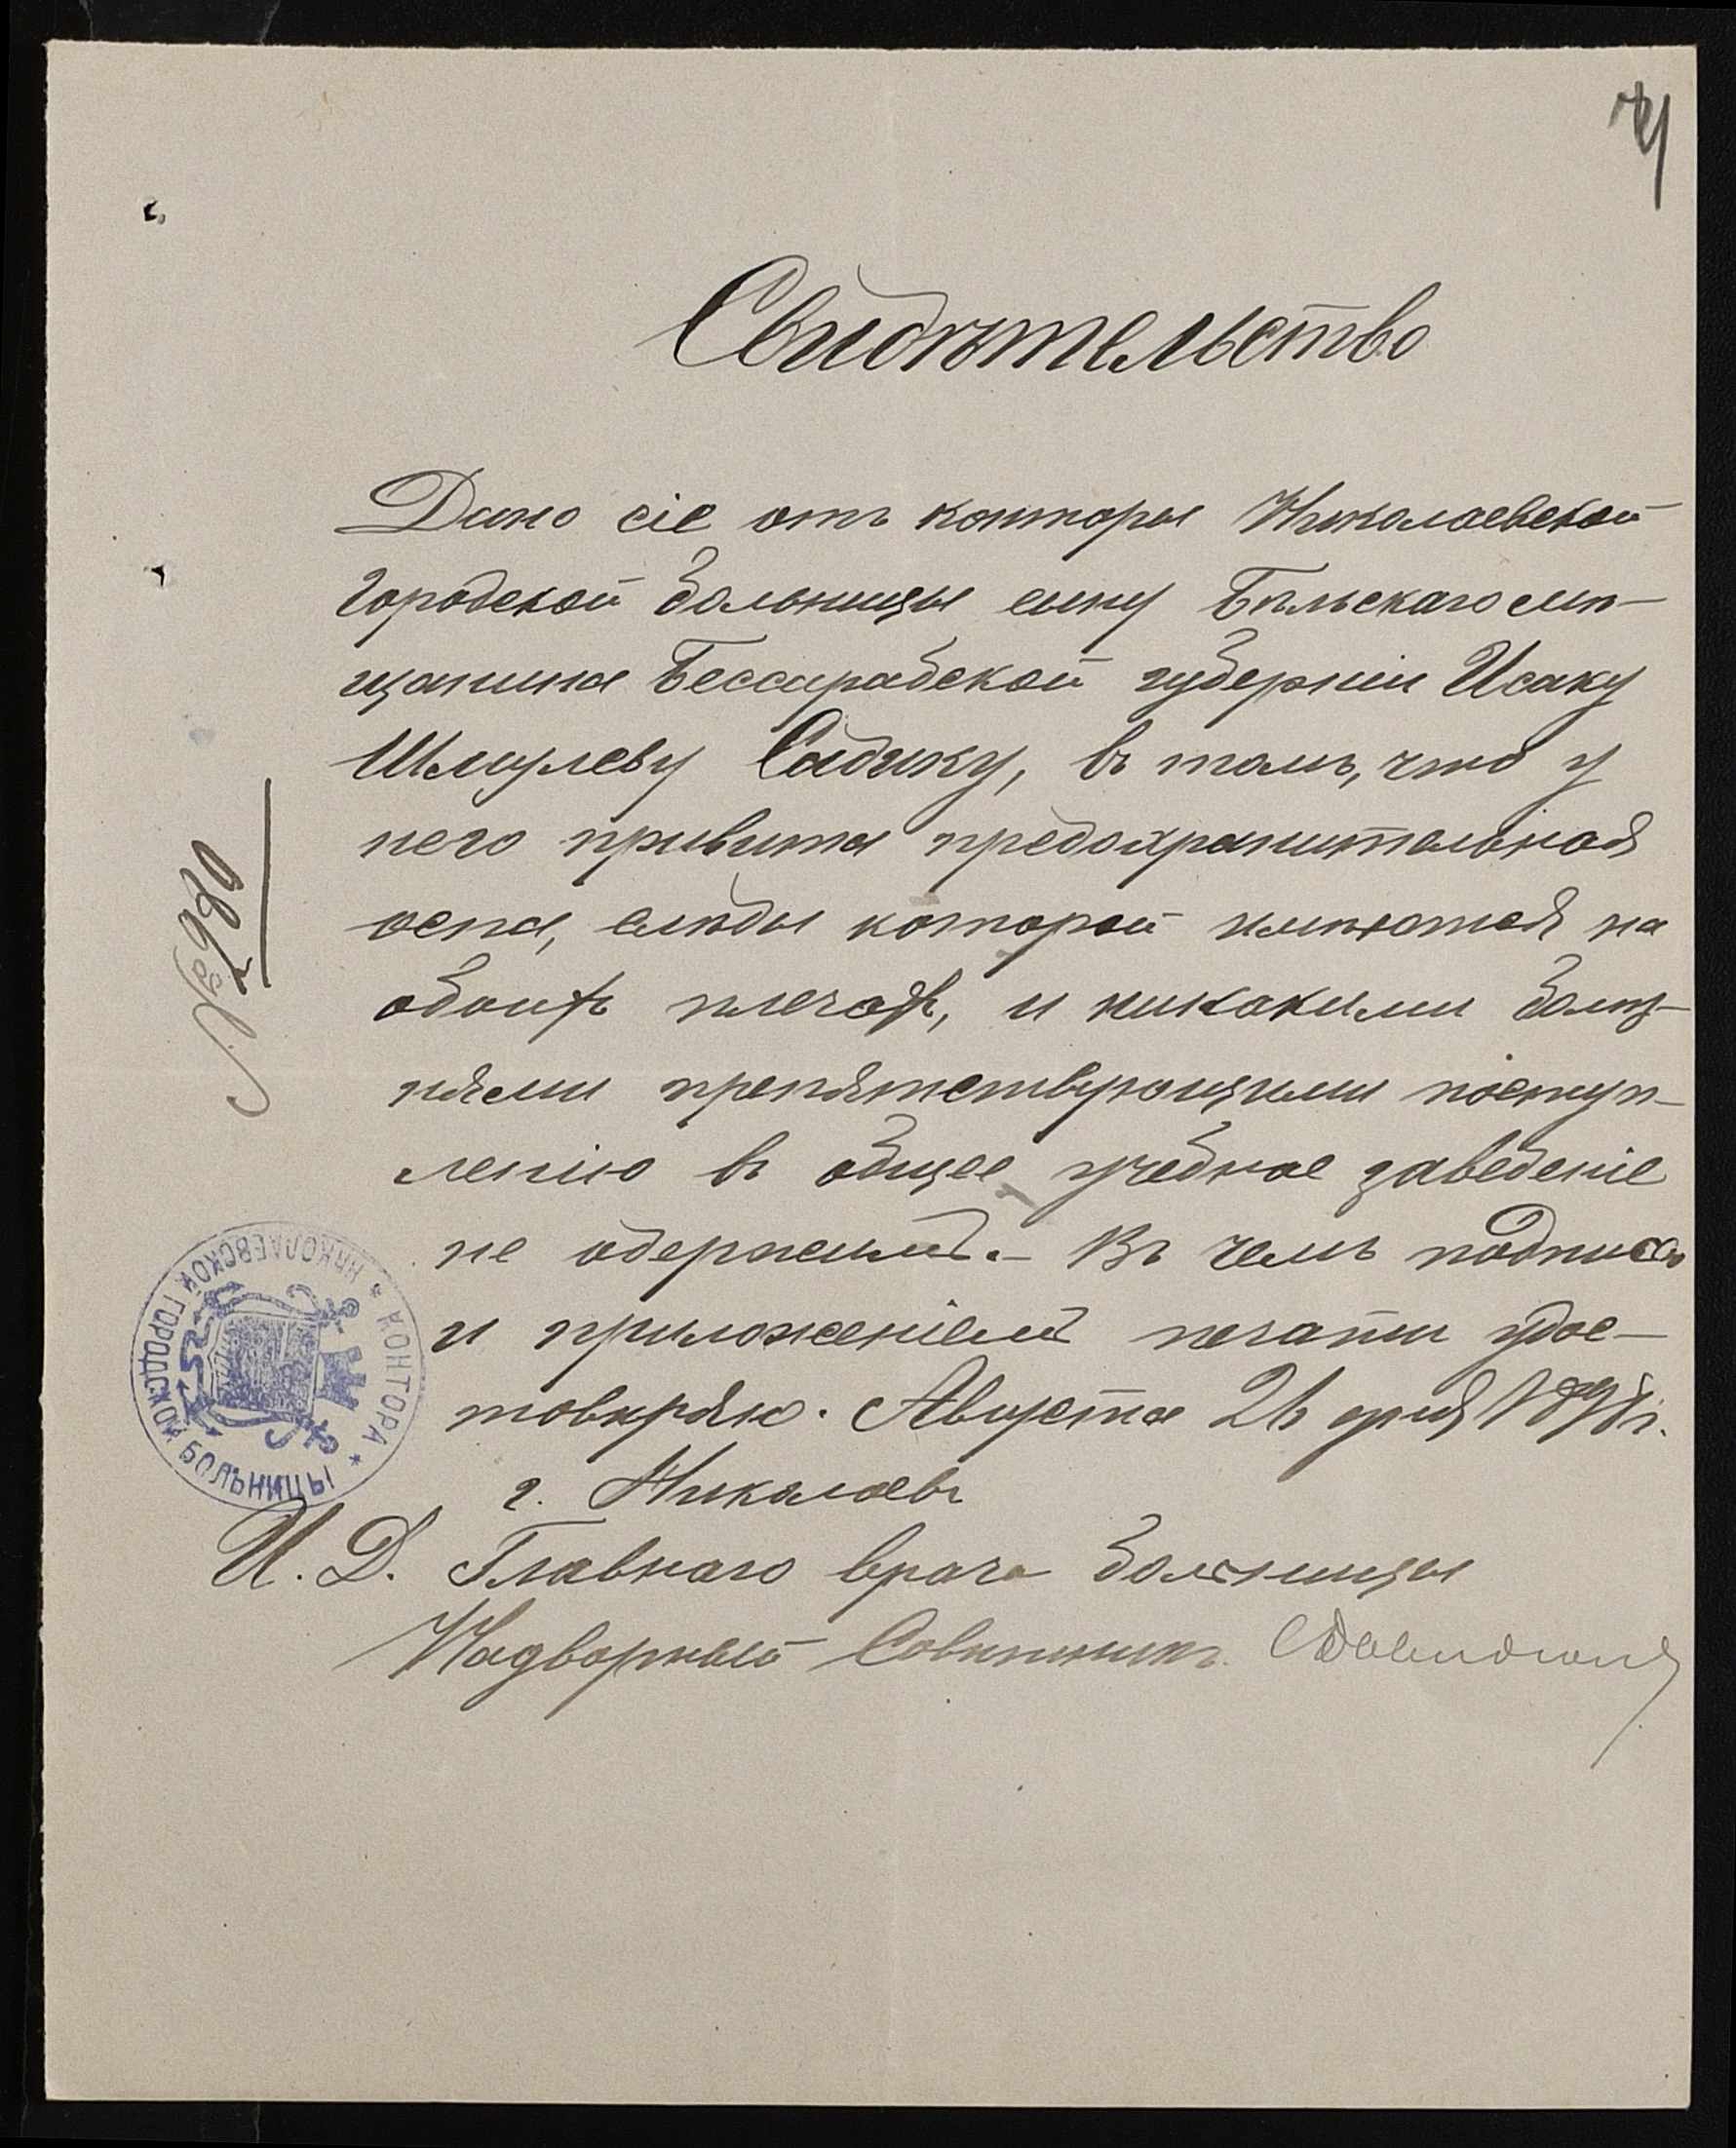 Свидѣтельство
Дано сіе отъ конторы Николаевской
Городской больницы сыну Бѣльскаго мѣ-
щанина Бессарабской губерніи Исаку
Шмулеву Садику, въ томъ, что у
него привита предохранительная
оспа, слѣды которой имѣются на
обоихъ плечахъ, и никакими болѣз-
нями препятствующими поступ-
ленію въ общее учебное заведеніе
не одержимъ. – Въ чемъ подписью
и приложеніемъ печати удос-
товѣряю. Августа 26 дня 1898 г.
г. Николаевъ
И. Д. Главнаго врача больницы
Надворный Совѣтникъ
№ 980
* КОНТОРА * НИКОЛАЕВСКОЙ ГОРОДСКОЙ БОЛЬНИЦЫ